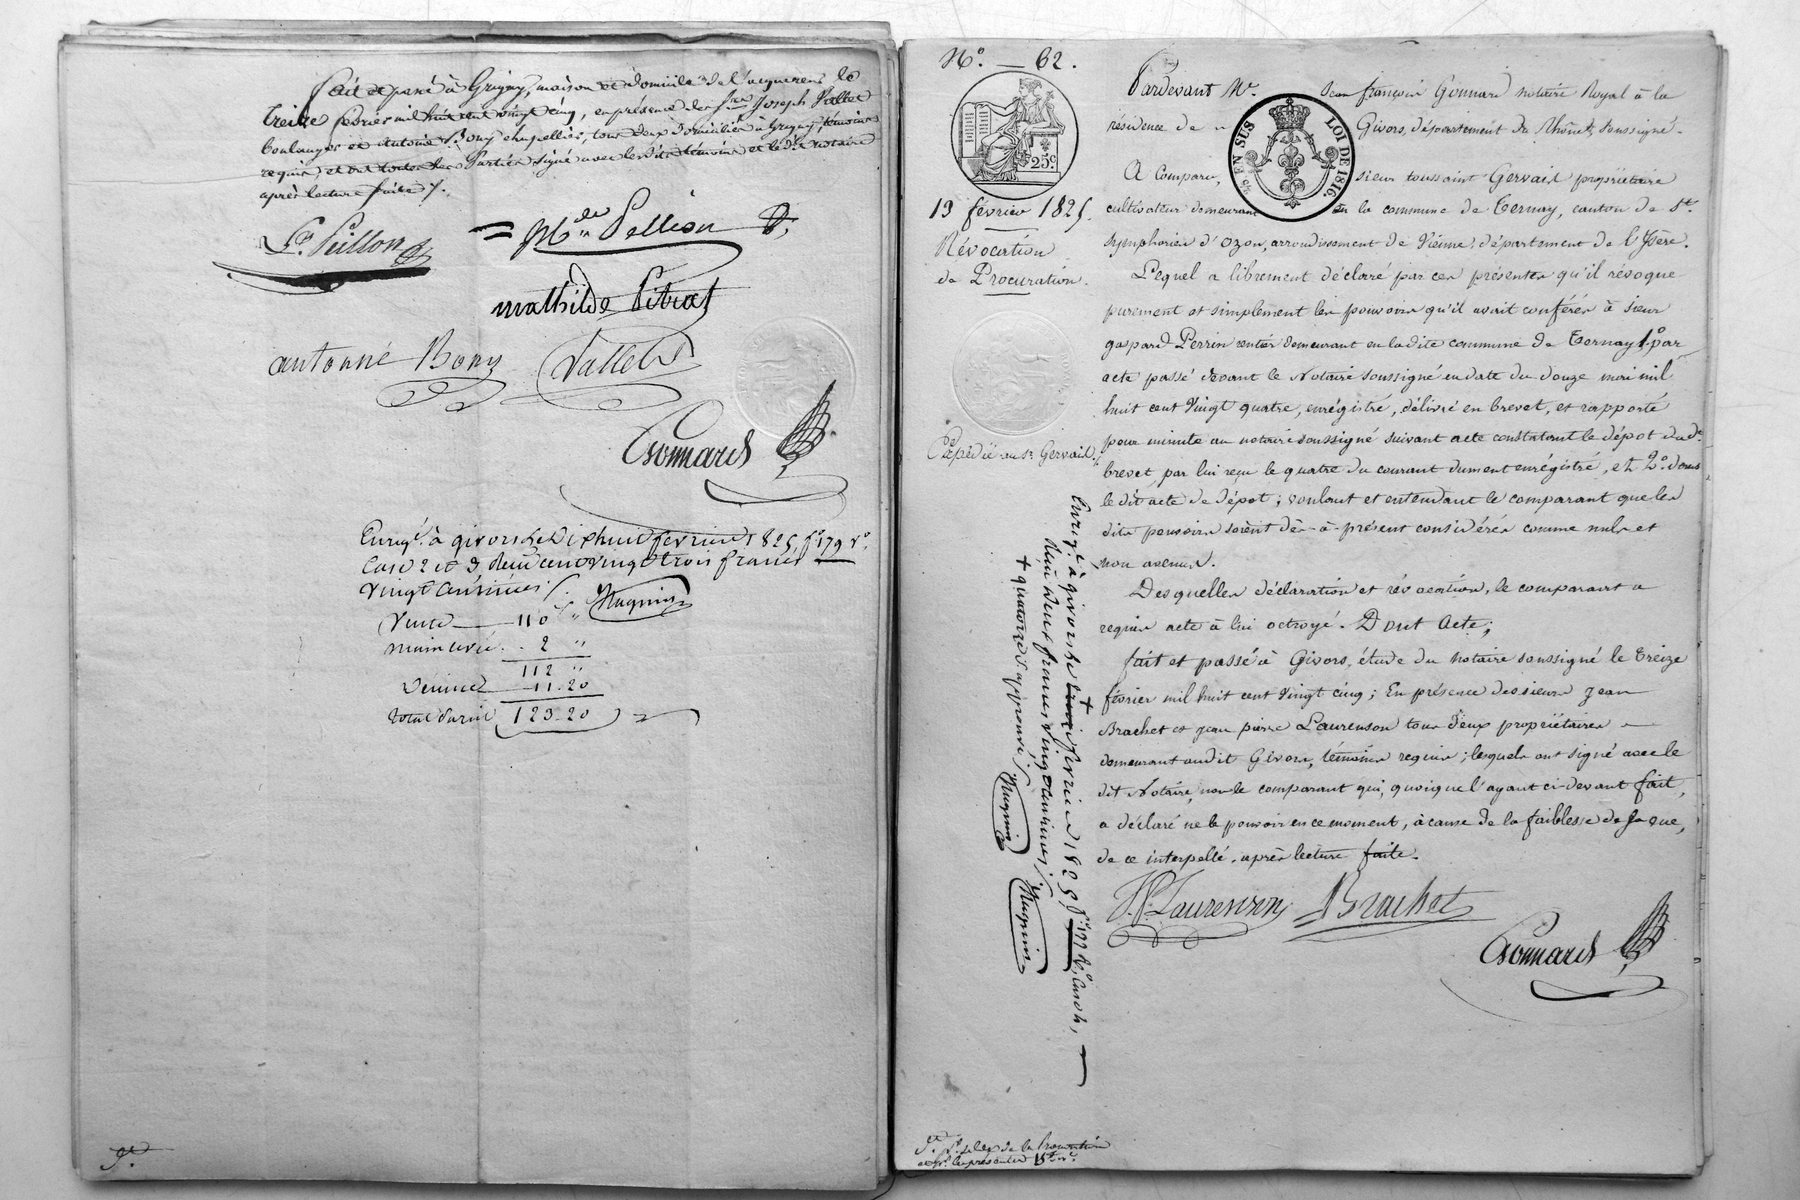 fait et passé à Grigny, maison et domicile de l'acquereur le
treize fevrier mil huit cent vingt cinq, en présence de Srs Joseph Vallet
boulanger et Antoine Bony chapellier, tous deux domiciliés à Grigny, témoins
requis, et ont toutes les Parties signé avec les dits témoins et le dit notaire
après lecture faite /.
Pellion
mathilde Pitrat
antoine Bony Vallet
Gonnard
Enregé à givors le dixhuit fevrier 1825, fo 179 vo.
Case 2 et 3 deux cent vingt trois francs
vingt centimes /.
Mugnier
Vente 110 "
2 "
112 "
Décime 11.20
total 123.20
No. — 62.
25c
EN SUS LOI DE 1816.
13 février 1825.
Révocation
de Procuration.
Expédié au Sr. Gervais.
Pardevant Me. Jean françois Gonnard notaire Royal à la
résidence de Givors, département du Rhône, soussigné.
A Comparu, sieur toussaint Gervais propriétaire
cultivateur demeurant en la commune de Ternay, canton de St.
Symphorien d'Ozon, arrondissement de Vienne, département de l'Isère.
Lequel a librement déclaré par ces présentes qu'il révoque
purement et simplement les pouvoirs qu'il avait conférés à sieur
gaspard Perrin rentier demeurant en la dite commune de Ternay 1o. par
acte passé devant le Notaire soussigné en date du douze mai mil
huit cent vingt quatre, enrégistré, délivré en brevet, et rapporté
pour minute au notaire soussigné suivant acte constatant le dépot du dt.
brevet, par lui reçu le quatre du courant dument enrégistré, et 2o. dans
le dit acte de dépot; voulant et entendant le comparant que les
dits pouvoirs soient dès-à-présent considérés comme nuls et
non avenus.
Desquelles déclaration et révocation, le comparant a
requis acte à lui octroyé. Dont Acte;
fait et passé à Givors, étude du notaire soussigné le treize
février mil huit cent vingt cinq; En présence des sieurs Jean
Brachet et Jean pierre Laurenson tous deux propriétaires
demeurant audit Givors, témoins requis; lesquels ont signé avec le
dit Notaire, non le comparant qui, quoique l'ayant ci-devant fait,
a déclaré ne le pouvoir en ce moment, à cause de la faiblesse de sa vue,
de ce interpellé, après lecture faite.
J. P. Laurenson Brachet
Gonnard
Enregé à givors le fevrier 1825, fo 177 Ro, Case 4,
deux francs vingt centimes /.
+ quatorze approuvé /.
Mugnier
Mugnier